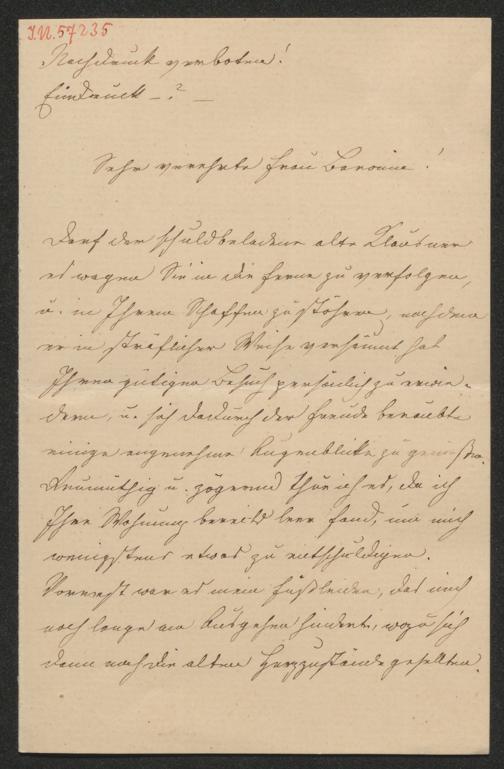 I.N. 57235
Nachdruck verboten!
Eindruck – ? –
Sehr verehrte Frau Baronin!
Darf der schuldbeladene alte Klausner
es wagen Sie in die Ferne zu verfolgen,
u. in Ihrem Schaffen zu stöhren, nachdem
er in sträflicher Weise versäumt hat
Ihren gütigen Besuch persönlich zu erwie-
dern, u. sich dadurch der Freude beraubte
einige angenehme Augenblicke zu genießen.
Reumüthig u. zögernd thue ich es, da ich
Ihre Wohnung bereits leer fand, um mich
wenigstens etwas zu entschuldigen.
Vorerst war es mein Fußleiden, das mich
noch lange am Ausgehen hindert, wozu sich
dann noch die alten Herzzustände gesellten.